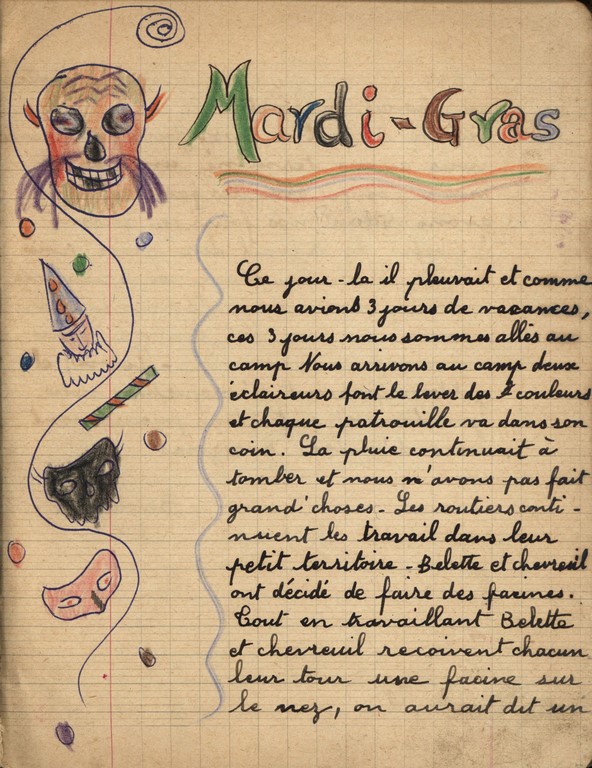 Mardi-Gras
Ce jour-la il pleuvait et comme
nous avions 3 jours de vacances,
ces 3 jours nous sommes allés au
camp Nous arrivons au camp deux
éclaireurs font le lever des couleurs
et chaque patrouille va dans son
coin. La pluie continuait à
tomber et nous n'avons pas fait
grand'choses - Les routiers conti-
nuent les travail dans leur
petit territoire - Belette et chevreuil
ont décidé de faire des facines.
Tout en travaillant Belette
et chevreuil recoivent chacun
leur tour une facine sur
le nez, on aurait dit un